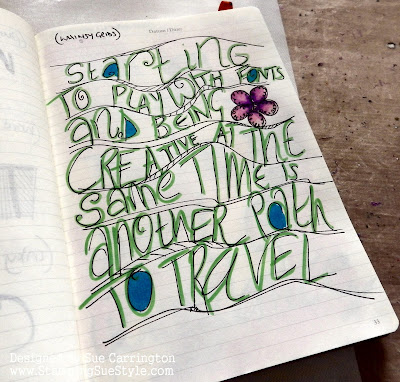 (WHIMSY GRIDS)
Datum / Date:
starting
TO PLAY WITH FONTS
and BEING
CREATIVE AT THE
SAME TIME is
another Path
TO TRAVEL
Designed by Sue Carrington
www.StampingSueStyle.com